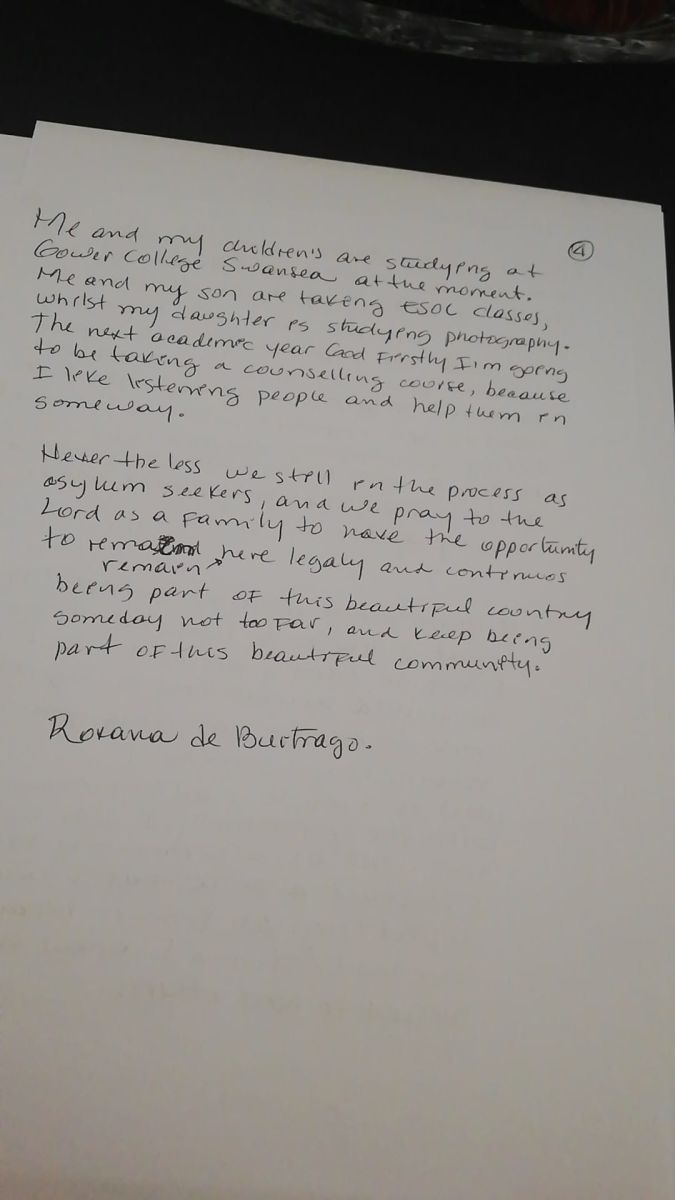 ④
Me and my children's are studying at
Gower College Swansea at the moment.
Me and my son are taking ESOL classes,
whilst my daughter is studying photography.
The next academic year God Firstly I'm going
to be taking a counselling course, because
I like listening people and help them in
someway.
Never the less we still in the process as
asylum seekers, and we pray to the
Lord as a family to have the opportunity
to remain here legaly and continuos
remain
being part of this beautiful country
someday not too far, and keep being
part of this beautiful community.
Roxana de Buitrago.